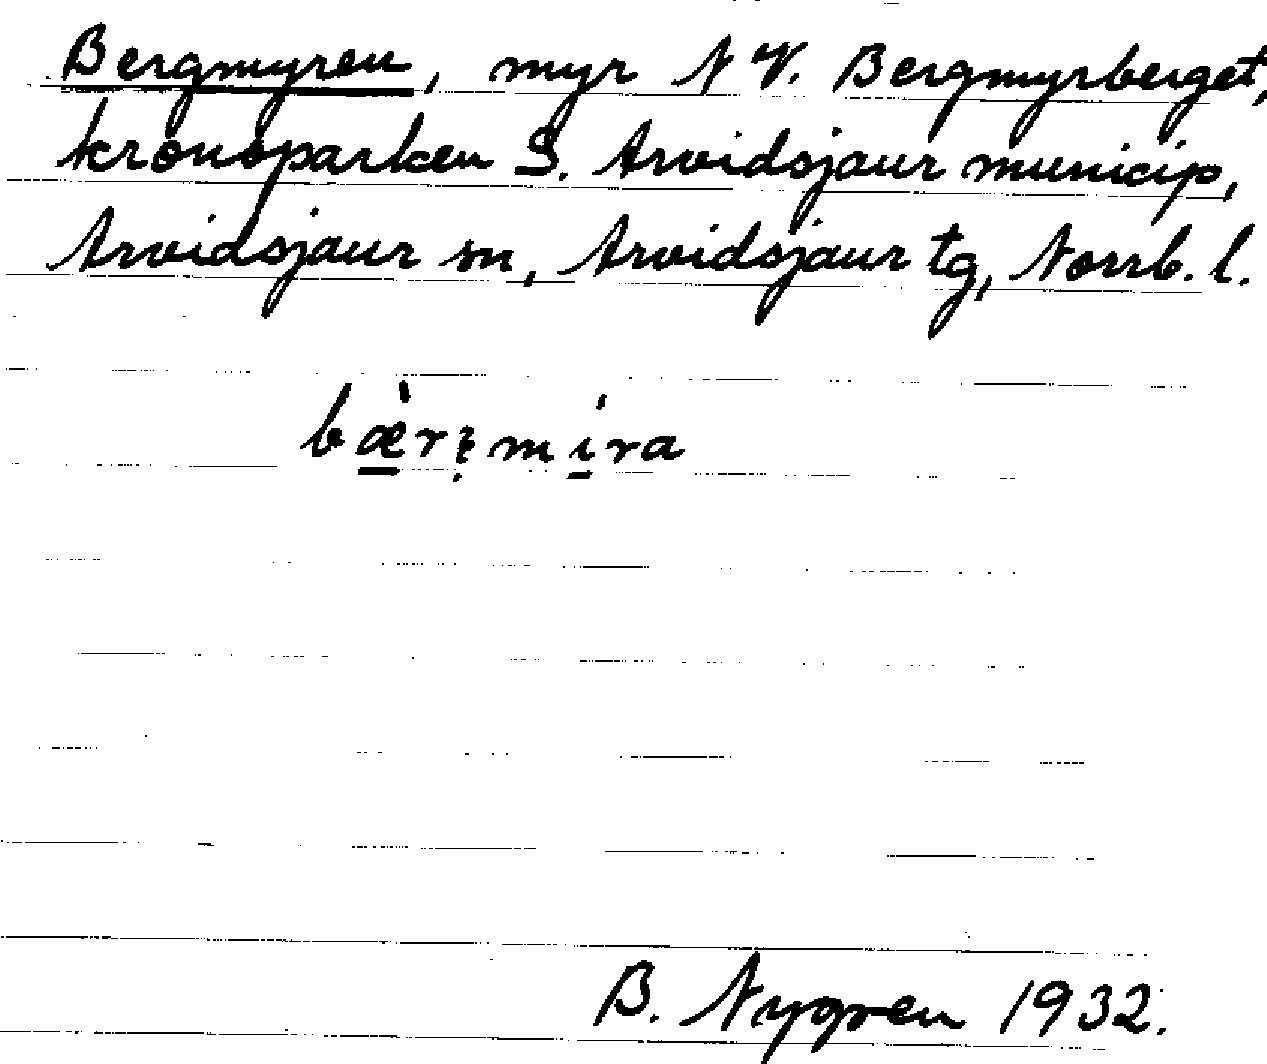 Bergmyren, myr N V. Bergmyrberget,
kronoparken S. Arvidsjaur municip,
Arvidsjaur sn, Arvidsjaur tg, Norrb. l.
B. Nygren 1932.